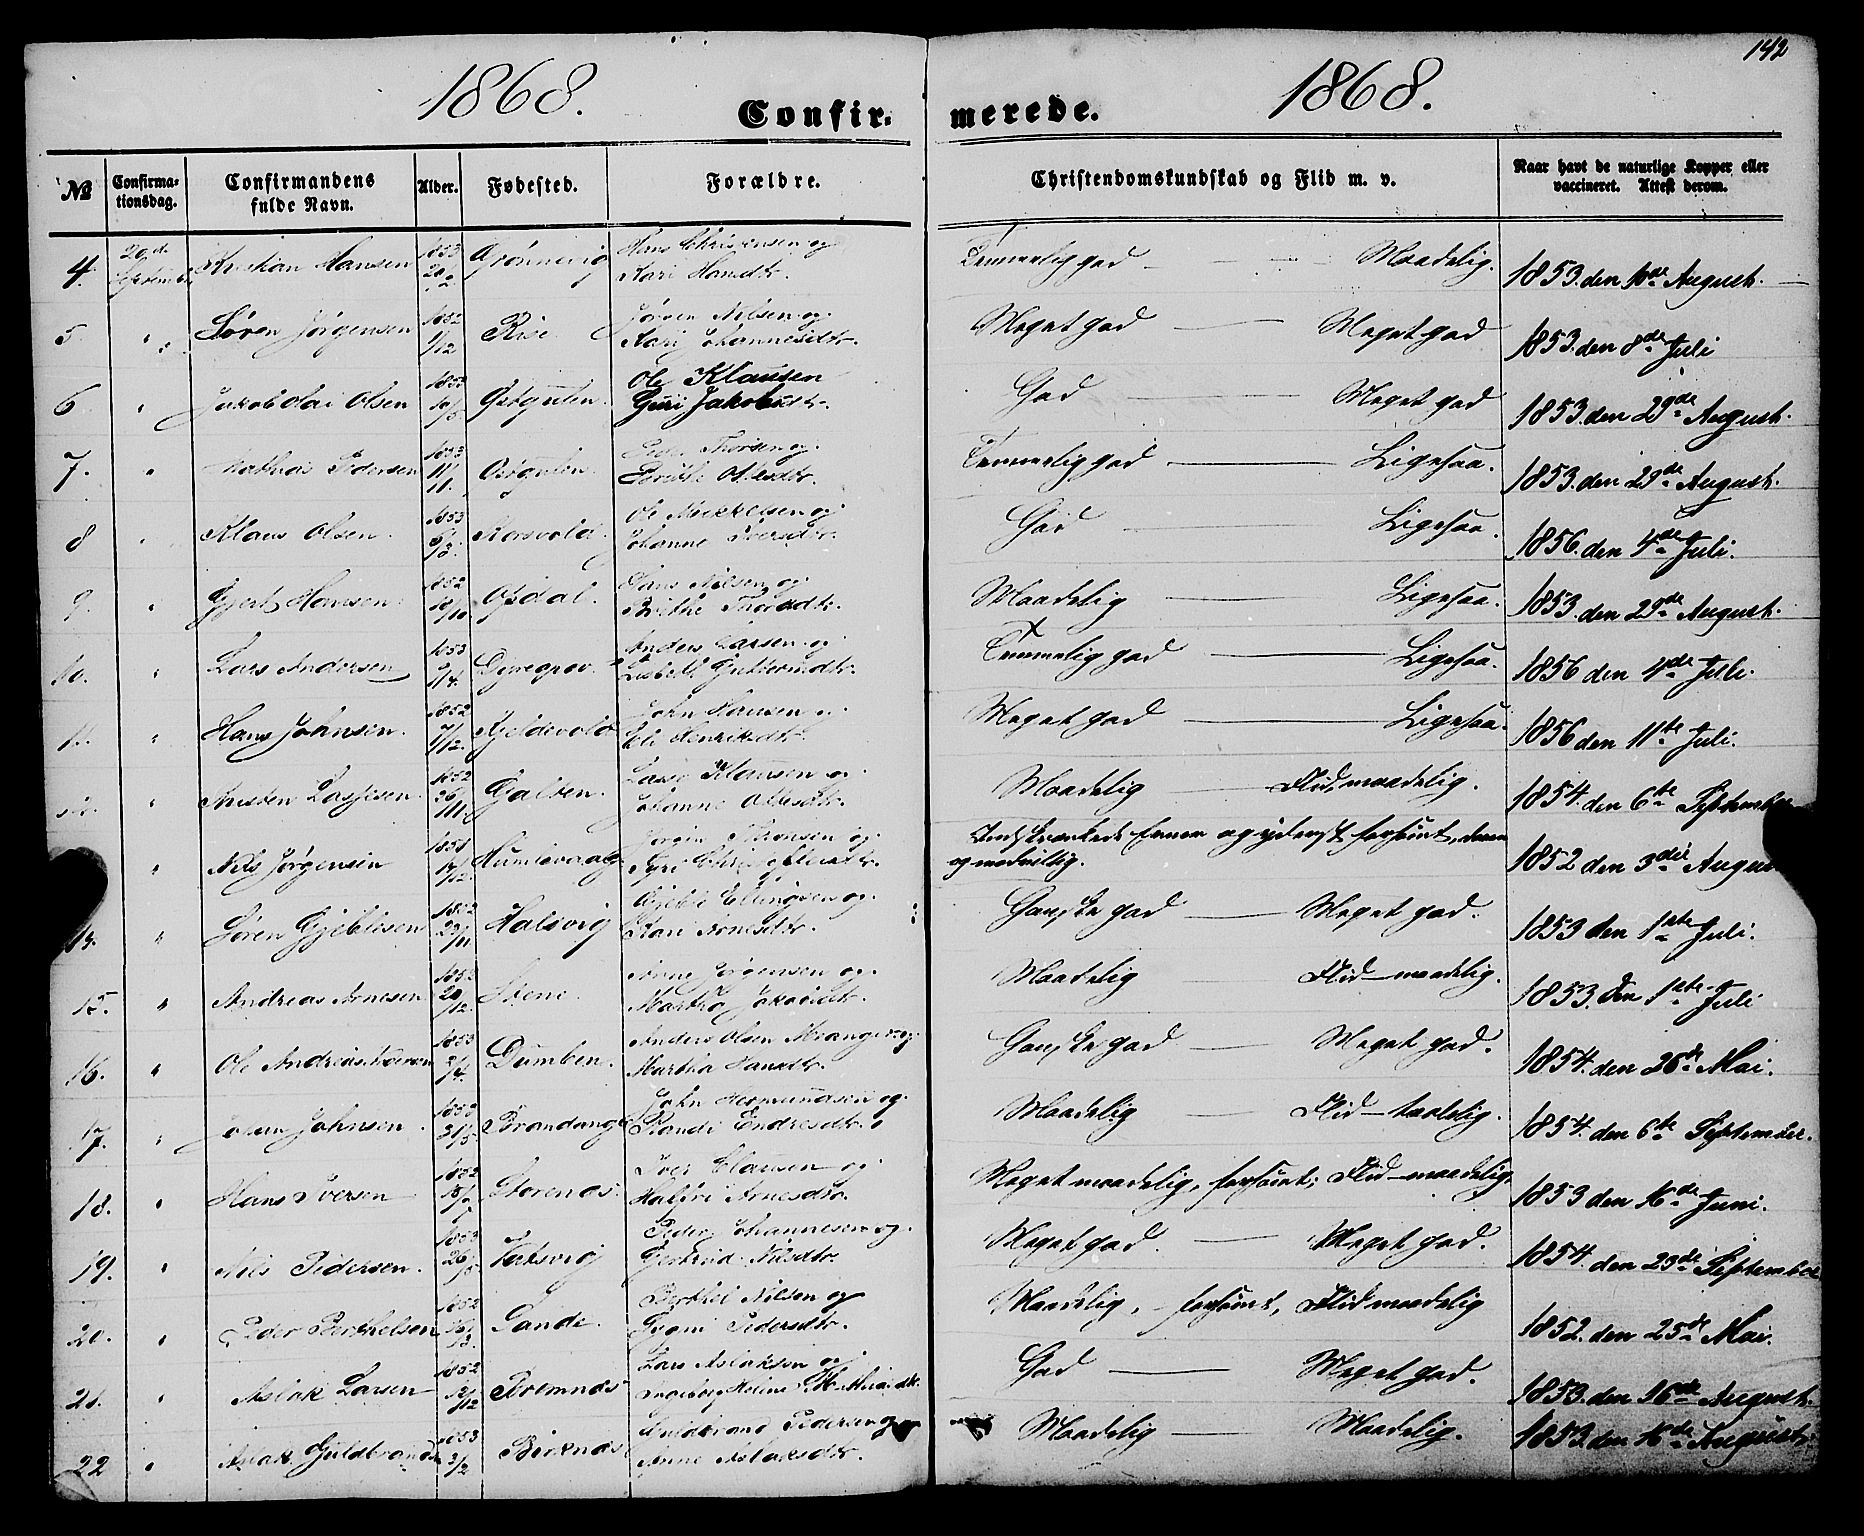 142
1868. Confir- merede. 1868.
№ Confirma- tionsdag. Confirmandens fulde Navn. Alder. Fødested. Forældre. Christendomskundskab og Flid m. v. Naar havt de naturlige Kopper eller vaccineret. Attest derom.
4. 29de September Kristian Hansen 1853 20/2 Grønnevig Hans Christensen og Kari Hansdtr. Temmelig god - Maadelig. 1853. den 10de August.
5. " Søren Jørgensen 1852 1/12 Rise Jørgen Nilsen og Kari Johannesdtr. Meget god - Meget god 1853. den 8de Juli
6 " Jakob Olai Olsen 1853 Ole Klausen Guri Jakobsdtr. God - Meget god 1853. den 29de August.
7. " Mathias Pedersen 1853 Peder Thorsen og Temmelig god - Ligesaa. 1853. den 29de August.
8 " Klaus Olsen. 1853 Korsvold. Ole Mikkelsen og Johanne Iversdtr. God - Ligesaa. 1856. den 4de Juli.
9. " Gjert Hansen. 1852 Opdal. Hans Nilsen og Brithe Maadelig - Ligesaa. 1853. den 29de August.
10. " Lars Andersen 1853 Dyregrov Anders Larsen og Lisbeth Guttormsdtr. Temmelig god - Ligesaa. 1856 den 4de Juli.
11. " Hans Johnsen. 1852 7/12. Kjeldevold John Hansen og Eli Henriksdtr. Meget god - Ligesaa. 1856 den 11te Juli.
" Lassesen. 1852 26/11. Galten. Lasse Klausen og Johanne Maadelig - Flid, maadelig. 1854. den 6te September
" Nils Jørgensen 1851 Jørgen og Indskrænkede Evner og yderst forsømt,
og modvillig. 1852 den 3die August
14. " Søren Gjeblesen 1852 23/11 Halsvig Gjeble Ellingsen og Kari Arnesdtr. Ganske god - Meget god. 1853 den 1ste Juli.
15. " Andreas Arnesen. 1852 20/12 Stene. Arne Jørgensen og Martha Jakobsdtr. Maadelig - Flid - maadelig. 1853. den 1ste Juli
16. " Ole Andreas 1853 2/4. Dumben. Anders Olsen og Martha Hansdtr. Ganske god - Meget god. 1854. den 26de Mai.
17. " Johan Johnsen. 1853 31/5 Brandanger John Hermundsen og Randi Endresdtr. Maadelig - Flid - taalelig. 1854. den 6te September.
18. " Hans Iversen 1852 Storenæs. Iver Clausen og Arnesdtr. Meget maadelig, forsømt; Flid - maadelig. 1853 den 16de Juni.
19. " Nils Pedersen. 1853 26/5 Peder Johannesen og Gjertrud Nilsdtr. Meget god. - Meget god. 1854. den 23de September
20. " Peder Berthelsen 1852 Sande. Berthel Nilsen og Pedersdtr. Maadelig, - forsømt, Flid maadelig 1852. den 25de Mai.
21. " Aslak Larsen 1852 Bremnæs Lars Aslaksen og Ingeborg Helene God - Meget god. 1853. den 16de August.
22 " Aslak Guldbrands 1853 2/2 Birknæs Guldbrand Pedersen og Anne Aslaksdtr. Maadelig - Maadelig. 1853. den 16de August.